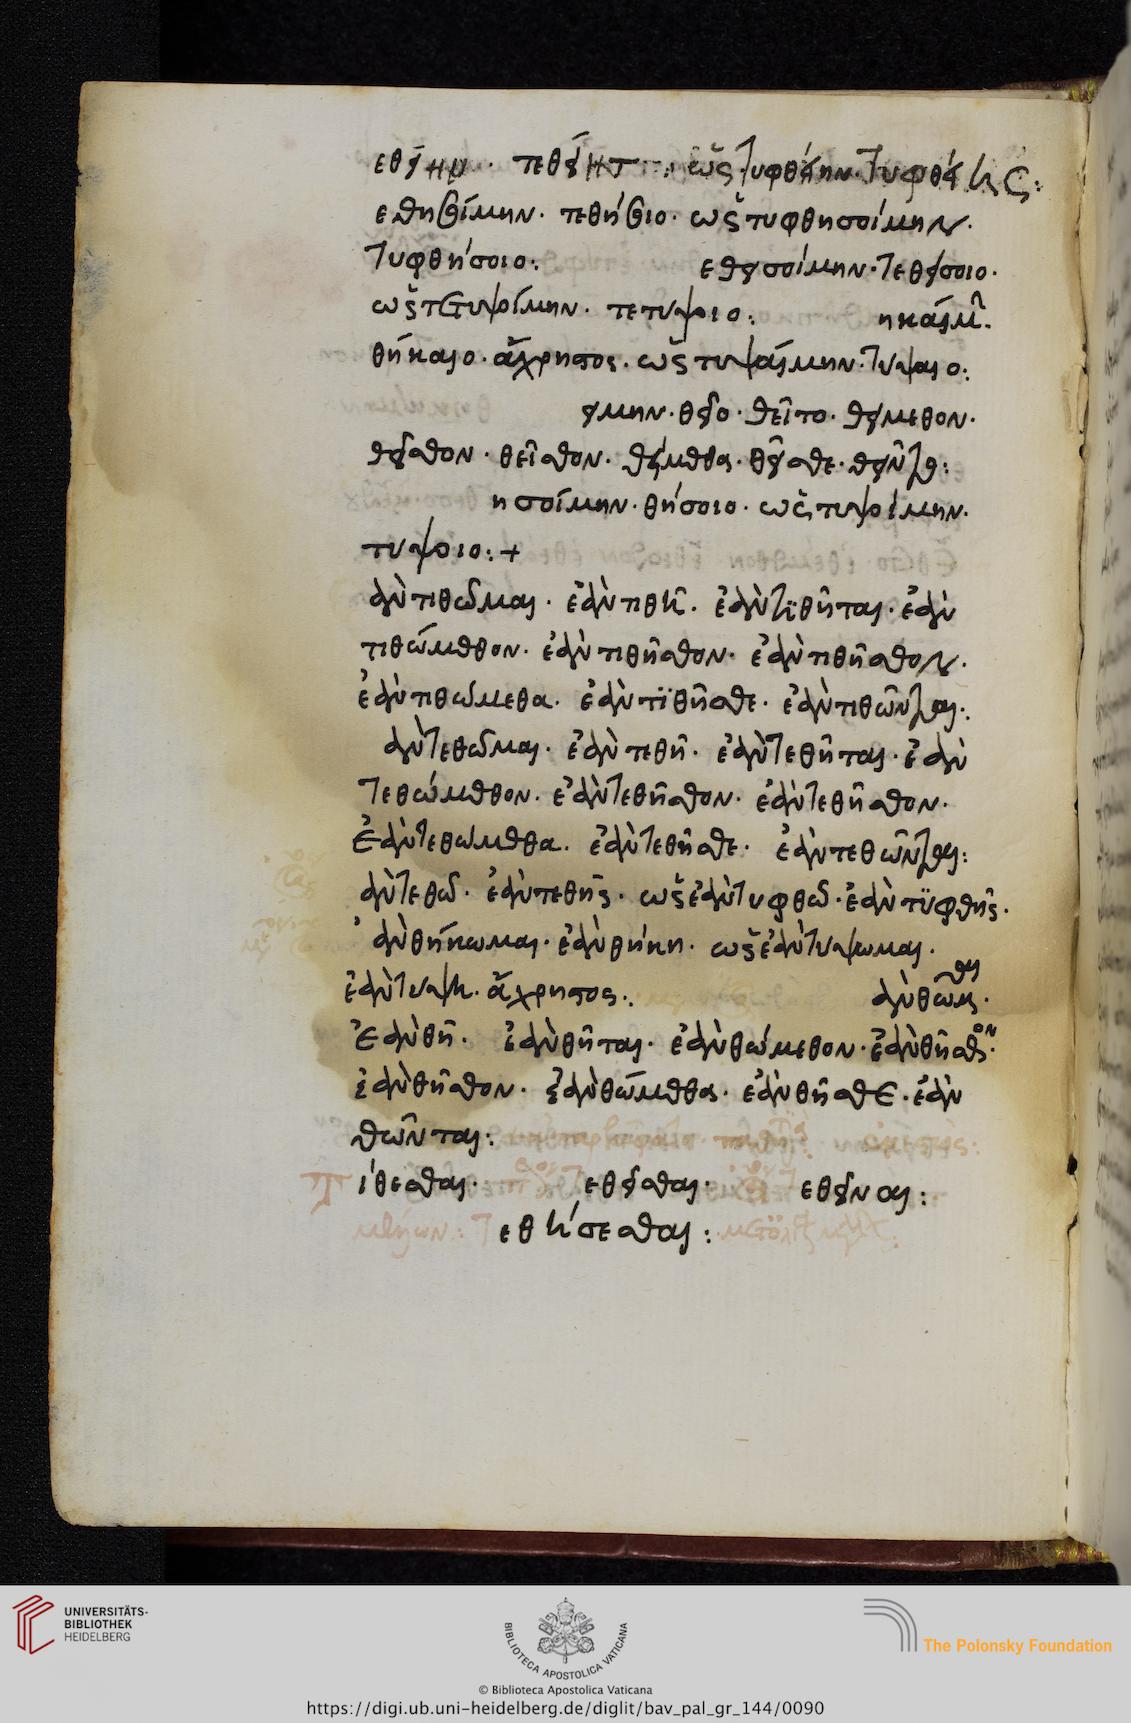 εθείημ · τεθείης : ὡς τυφθείην · τυφθείης :
εθησίμην · τεθήσιο · ὡς τυφθησοίμην ·
τυφθήσοιο : εθησοίμην · τεθήσοιο ·
ὡς τετυψοίμην · τετυψοιο : ηκαίμην ·
θήκαιο · ἄχρηστος · ὡς τυψαίμην · τυψαιο :
είμην · θεῖο · θεῖτο · θείμεθον ·
θεῖσθον · θεῖσθον · θείμεθα · θεῖσθε · θεῖντο :
ησοίμην · θήσοιο · ὡς τυψοίμην ·
τυψοιο : +
ὰν τιθῶμαι · ἐὰν τιθῆ · ἐὰν τιθῆται · ἐὰν
τιθώμεθον · ἐὰν τιθῆσθον · ἐὰν τιθῆσθον ·
ἐὰν τιθώμεθα · ἐὰν τϊθῆσθε · ἐὰν τιθῶνται :
ὰν τεθῶμαι · ἐὰν τεθῆ · ἐὰν τεθῆται · ἐὰν
τεθώμεθον · ἐὰν τεθῆσθον · ἐὰν τεθῆσθον ·
ἐὰν τεθωμεθα · ἐὰν τεθῆσθε · ἐὰν τεθῶνται :
ὰν τεθῶ · ἐὰν τεθῆς · ὡς ἐὰν τυφθῶ · ἐὰν τϋφθῆς ·
ὰν θήκωμαι · ἐὰν θήκη · ὡς ἐὰν τυψωμαι ·
ἐὰν τυψη · ἄχρηστος : ὰν θῶμαι ·
ἐὰν θῆ · ἐὰν θῆται · ἐὰν θώμεθον · ἐὰν θῆσθον ·
ἐὰν θῆσθον · ἐὰν θώμεθα · ἐὰν θῆσθε · ἐὰν
θῶνται :
Τίθεσθαι · τεθεῖσθαι · τεθεῖναι :
τεθήσεσθαι :
UNIVERSITÄTS-
BIBLIOTHEK
HEIDELBERG
BIBLIOTECA APOSTOLICA VATICANA
The Polonsky Foundation
© Biblioteca Apostolica Vaticana
https://digi.ub.uni-heidelberg.de/diglit/bav_pal_gr_144/0090